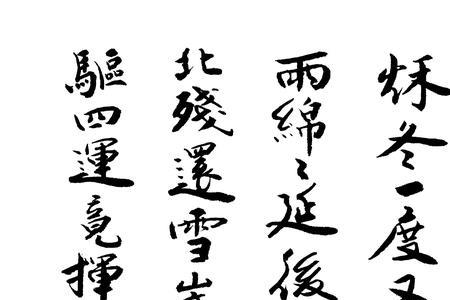 秌冬一度又
雨綿〻延後
北殘還雪
驅四運竟揮